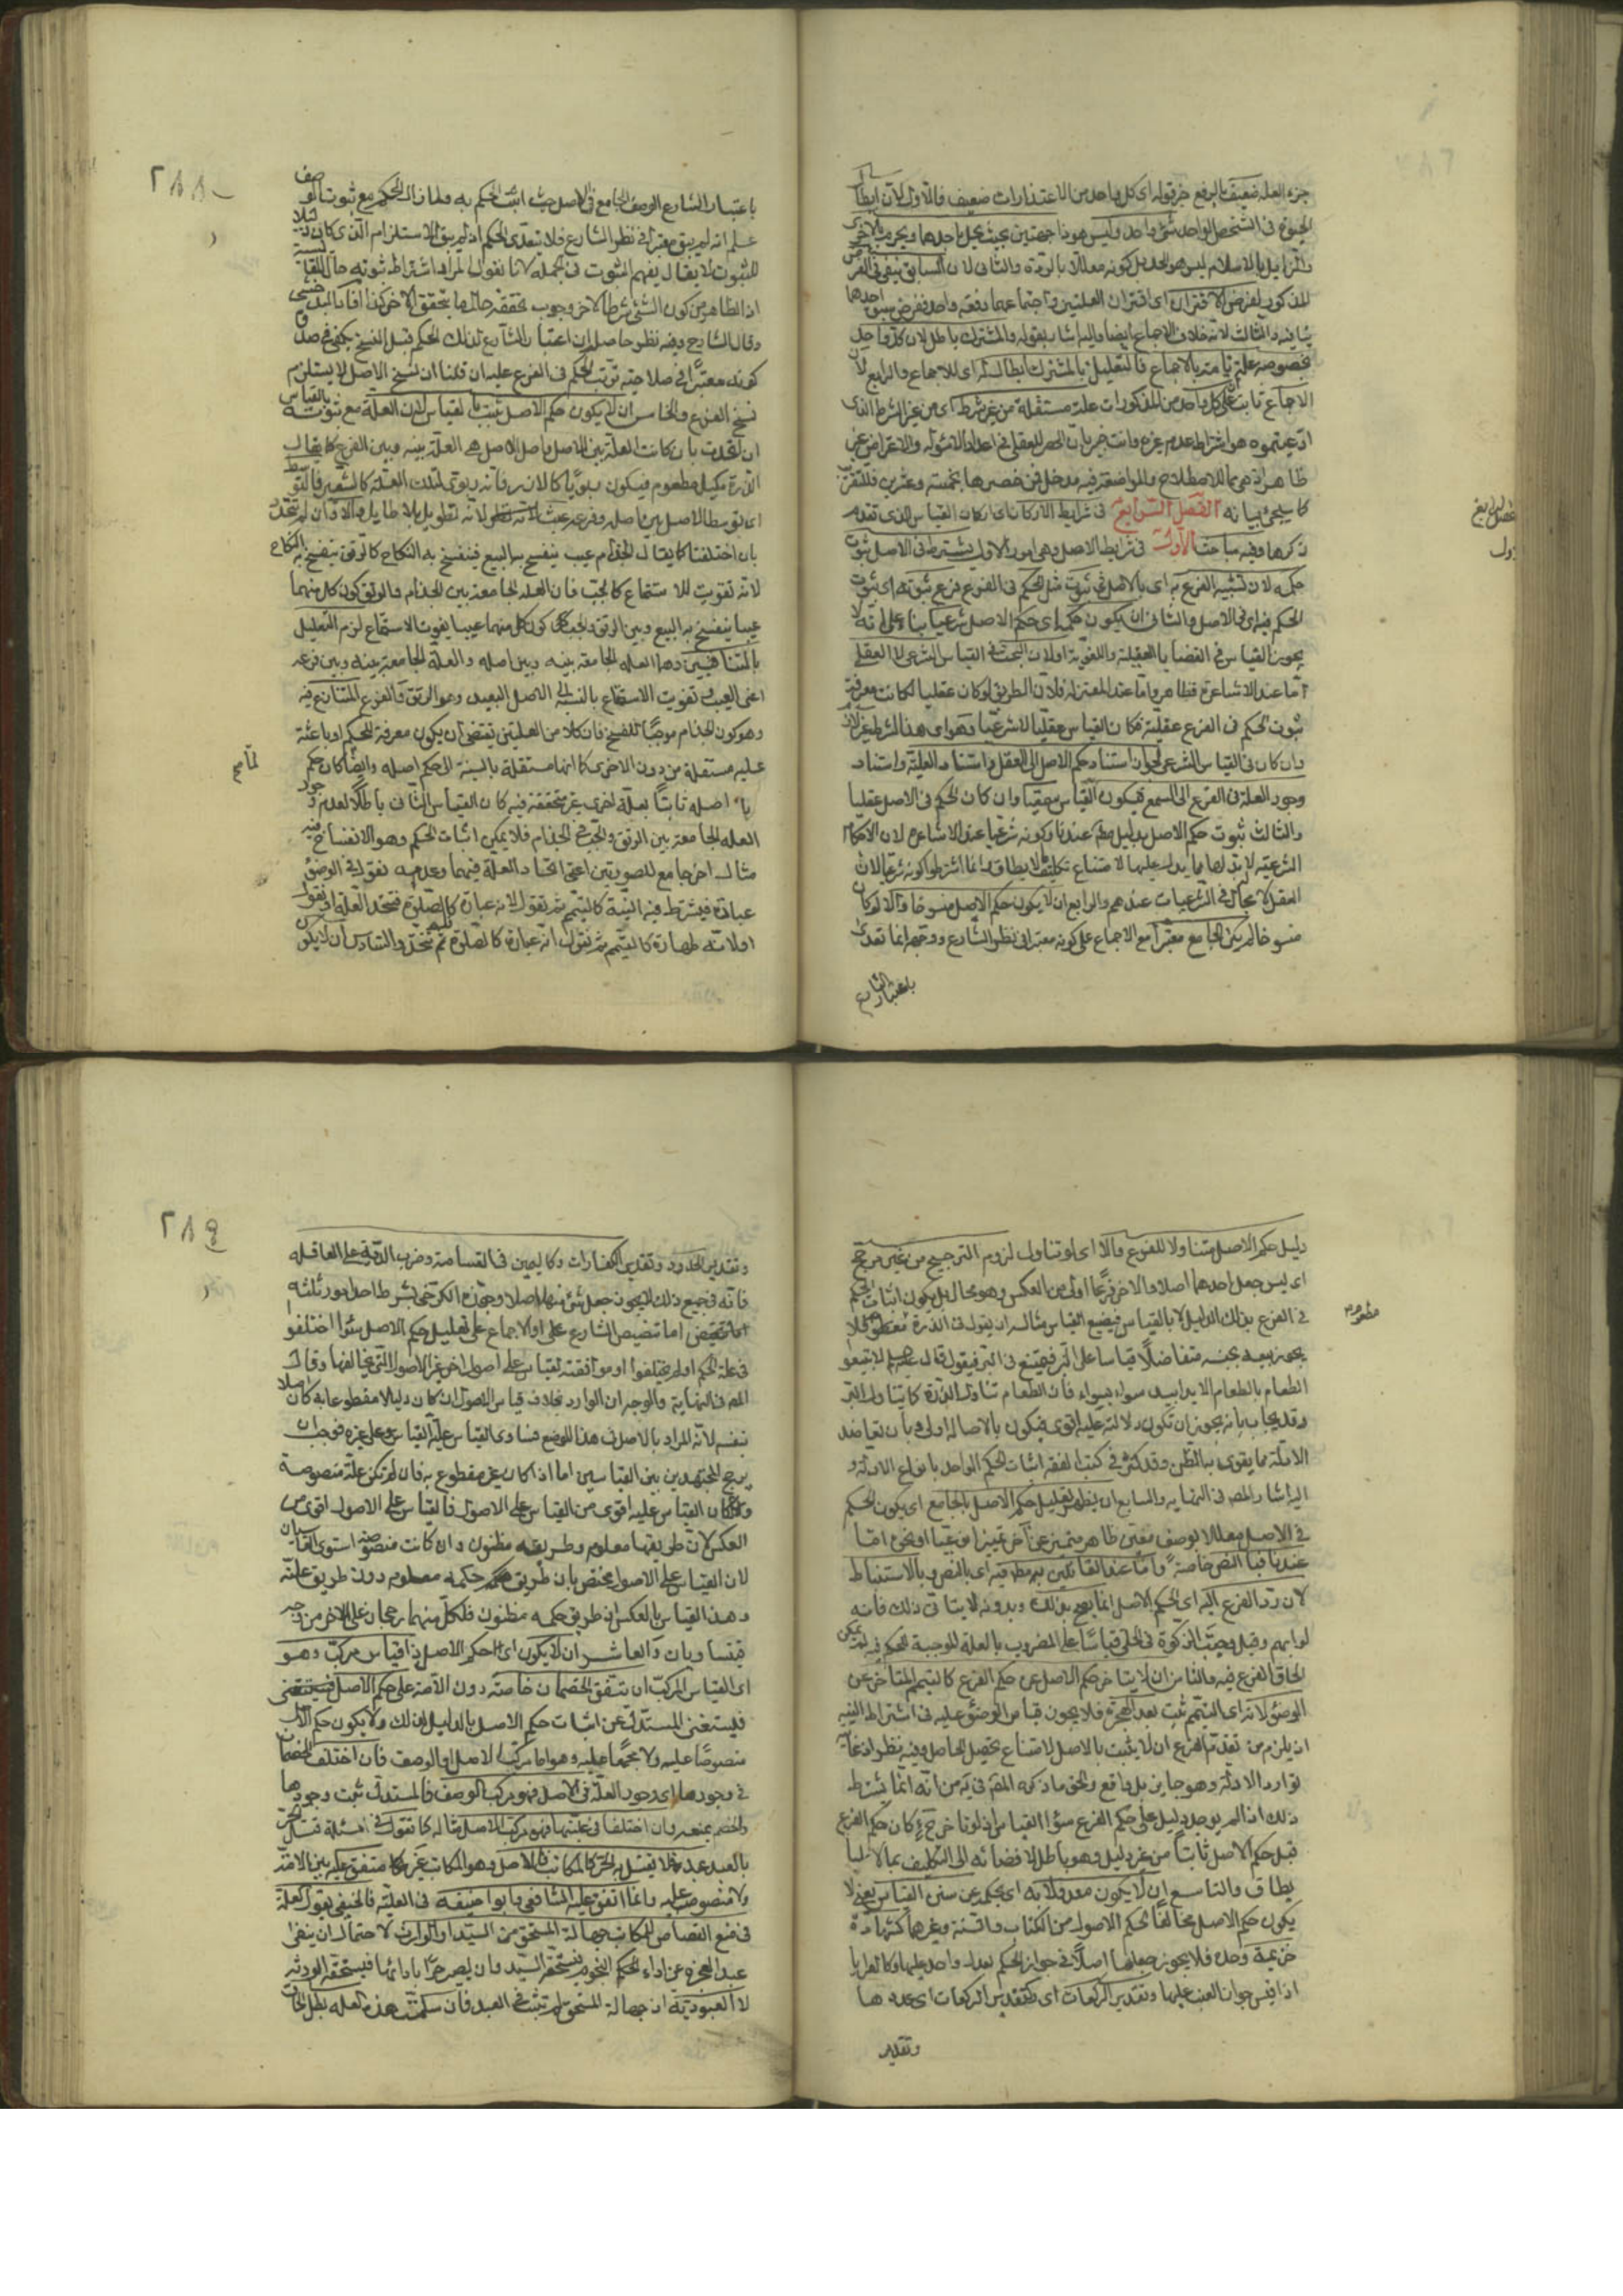 جزء العلة ضعيف بالرفع خبر قوله اى كل واحد من الاعتذارات ضعيف فالاول لان ابطال
الجنوح فى الشخص الواحد شئ واحد وليس هو ذا جهتين بحيث يحل باحدهما ويحرم بالاخرى
والزايل بالاسلام ليس هو الحد بل كونه معللا بالردة والثانى لان السابق ينفى فى الفرض
المذكور لفرض الاقتران اى اقتران العلتين واجتماعهما دفعة واحدة ففرض سبق احدهما
ينافيه والثالث لانه خلاف الاجماع ايضا واليه اشار بقوله والمشترك باطل لان كل واحد
بخصوصه علة تامة بالاجماع فالتعليل بالمشترك ابطال له اى للاجماع والرابع لان
الاجماع ثابت على كل واحد من المذكورات علة مستقلة من غير شرط اى من غير الشرط الذى
ادعيتموه هو اشتراط عدم غيره وانت خبير بان الحصر العقلى فى اعداد الاسئولة والاعتراض غير
ظاهر اذ هى مما للاصطلاح والمواضعة فيه مدخل فمن حصرها بخمسة وعشرين فللتقريب
كما سيجئ بيانه الفصل السابع فى شرايط الاركان اى اركان القياس الذى تقدم
ذكرها وفيه مباحث الاول فى شرايط الاصل وهى امور الاول يشترط فى الاصل ثبوت
حكمه لان تشبيه الفرع به اى بالاصل فى ثبوت مثل الحكم فى الفرع فرع ثبوته اى ثبوت
الحكم فيه اى فى الاصل والثانى ان يكون حكمه اى حكم الاصل شرعيا بناء على انه لا
يجوز القياس فى القضايا العقلية واللغوية او لان البحث فى القياس الشرعى لا العقلى
اما عند الاشاعرة فظاهر واما عند المعتزلة فلان الطريق لو كان عقليا لكانت معرفة
ثبوت الحكم فى الفرع عقلية فكان القياس عقليا لا شرعيا وهو اى هذا الشرط غير لازم
وان كان فى القياس الشرعى لجواز استناد حكم الاصل الى العقل واستناد العلية واستناد
وجود العلة فى الفرع الى السمع فيكون القياس سمعيا وان كان الحكم فى الاصل عقليا
والثالث ثبوت حكم الاصل بدليل عندنا وكونه شرعيا عند الاشاعرة لان الاحكام
الشرعية لا بد لها مما يدل عليها لامتناع تكليف ما لا يطاق وانما اشترطوا كونه شرعيا لان
العقل لا مجال له فى الشرعيات عندهم والرابع ان لا يكون حكم الاصل منسوخا والا لو كان
منسوخا لم يكن الجامع معتبرا مع الاجماع على كونه معتبرا فى نظر الشارع ووجهه انما تعدى
باعتبار الشارع
الفصل السابع
٢٨٨
باعتبار الشارع الوصف الجامع فى الاصل حيث اثبت الحكم به ولما زال الحكم مع ثبوت الوصف
علم انه لم يبق معتبرا فى نظر الشارع فلا يتعدى الحكم اذ لم يبق الاستلزام الذى كان دليلا
للثبوت لا يقال يفهم الثبوت فى الجملة لانا نقول المراد اشتراط ثبوته حال المقايسة
اذ الظاهر من كون الشئ شرطا لاخر وجوب تحققه حال ما يتحقق الاخر كذا افاد السيد
وقال الشارح وفيه نظر حاصله ان اعتبار الشارع لذلك الحكم قبل الفسخ يكفى فى صدق
كونه معتبرا فى صلاحيته ترتب الحكم فى الفرع عليه ان قلنا ان نسخ الاصل لا يستلزم
نسخ الفرع والخامس ان لا يكون حكم الاصل ثبت بالقياس لان العلة مع ثبوته بالقياس
ان اتحدت بان كانت العلة بين الاصل واصل الاصل هى العلة بينه وبين الفرع كما يقال
الذرة مكيل مطعوم فيكون ربويا كالارز فانه ربوى لتلك العلة كالشعير فالتوسط
اى توسط الاصل بين اصله وفرعه عبث لانه تطويل بلا طايل والا وان لم تتحد
بان اختلفتا كما يقال الجذام عيب ينفسخ به البيع فينفسخ به النكاح كالرتق ينفسخ به النكاح
لانه تفويت للاستمتاع كالجب فان العلة الجامعة بين الجذام والرتق كون كل منهما
عيبا ينفسخ به البيع وبين الرتق والجب كون كل منهما عيبا يفوت الاستمتاع لزم التعليل
بالمتنافيين وهما العلة الجامعة بينه وبين اصله والعلة الجامعة بينه وبين فرعه
اعنى العيب وتفويت الاستمتاع بالنسبة الى الاصل البعيد وهو الرتق والفرع المتنازع فيه
وهو كون الجذام موجبا للفسخ فان كلا من العلتين تقتضى ان يكون معرفة للحكم او باعثة
عليه مستقلة من دون الاخرى كما انها مستقلة بالنسبة الى حكم اصله وايضا كان حكم
اصله ثابتا بعلة اخرى غير متحققة فيه كان القياس الثانى باطلا لعدم وجود
العلة الجامعة بين الرتق والجب فى الجذام فلا يمكن اثبات الحكم وهو الانفساخ فيه
مثال اخر جامع للصورتين اعنى اتحاد العلة فيهما وعدمه نقول فى الوضوء
عبادة فيشترط فيه النية كالتيمم ثم نقول لانه عبادة كالصلوة فتتحد العلة او نقول
اولا انه طهارة كالتيمم ثم نقول انه عبادة كالصلوة فلم تتحد والسادس ان لا يكون
دليل حكم الاصل متناولا للفرع والا اى لو تناول لزم الترجيح من غير مرجح
اى ليس جعل احدهما اصلا والاخر فرعا اولى من العكس وهو محال بل يكون اثبات الحكم
فى الفرع بذلك الدليل لا بالقياس فيضيع القياس مثاله ان يقول فى الذرة مطعوم فلا
يجوز بيعه بجنسه متفاضلا قياسا على البر فيمنع فى البر فيقول قال صلعم لا تبيعوا
الطعام بالطعام الا يدا بيد سواء بسواء فان الطعام تناول الذرة كما يتناول البر
وقد يجاب بانه يجوز ان تكون دلالته عليه اقوى فيكون بالاصالة اولى وبان تعاضد
الادلة مما يقوى به الظن وقد كثر فى كتب الفقه اثبات الحكم الواحد بانواع الادلة و
اليه اشار المصنف فى النهاية والسابع ان يظهر تعليل حكم الاصل بالجامع اى يكون الحكم
فى الاصل معللا بوصف معين ظاهر متميز عن اخر تميزا
عندنا فبالنص خاصة واما عند القائلين به مط فيه اى بالنص وبالاستنباط
لان رد الفرع اليه اى الحكم الاصل انما يصح بذلك وبدونه لا يتأتى ذلك فانه
لو ابهم وقيل يجب الزكوة فى الحلى قياسا على المضروب بالعلة الموجبة للحكم فيه لم يمكن
الحاق الفرع فيه والثامن ان لا يتأخر حكم الاصل عن حكم الفرع كالتيمم المتأخر عن
الوضوء لانه اى التيمم ثبت بعد الهجرة فلا يجوز قياس الوضوء عليه فى اشتراط النية
اذ يلزم من تقدم الفرع ان لا يثبت بالاصل لامتناع تحصيل الحاصل وفيه نظر اذ غايته
توارد الادلة وهو جايز بل واقع والحق ما ذكره المصنف فى يه من انه انما يشترط
ذلك اذا لم يوجد دليل على حكم الفرع سوى القياس اذ لو تأخر ح كان حكم الفرع
قبل حكم الاصل ثابتا من غير دليل وهو باطل لافضائه الى التكليف بما لا
يطاق والتاسع ان لا يكون معدولا به اى بحكمه عن سنن القياس يعنى لا
يكون حكم الاصل مخالفا لحكم الاصول من الكتاب والسنة وغيرهما كشهادة
خزيمة وحده فلا يجوز جعلها اصلا فى جواز الحكم بعدل واحد عليها وكالعرايا
اذا قيس جواز العنب عليها وتقدير الركعات اى كتقدير الركعات اى عددها
وتقدير
مطعوم
٢٨٩
وتقدير الحدود وتقدير الكفارات وكاليمين فى القسامة وضرب الدية على العاقلة
فانه فى جميع ذلك لا يجوز جعل شئ منها اصلا وجوزه الكرخى بشرط احد امور ثلثه
اما تنصيص الشارع على او الاجماع على تعليل حكم الاصل سواء اختلفوا
فى علة الحكم او لم يختلفوا او موافقته لقياس على اصول اخر غير الاصول التى خالفها وقال
المصنف فى النهاية والوجه ان الوارد بخلاف قياس الاصول ان كان دليلا مقطوعا به كان اصلا
بنفسه لانه المراد بالاصل فى هذا الموضع فساوى القياس عليه القياس على غيره فوجب ان
يرجح المجتهد بين القياسين اما اذا كان غير مقطوع به فان لم تكن علته منصوصة
وكان القياس عليه اقوى من القياس على الاصول فالقياس على الاصول اقوى من
العكس لان طريقها معلوم وطريقه مظنون وان كانت منصوصة استوى القياسان
لان القياس على الاصول يختص بان طريق حكمه معلوم دون طريق علته
وهذا القياس بالعكس ان طريق حكمه مظنون فلكل منهما رجحان على الاخر من وجه
فيتساويان والعاشر ان لا يكون اى حكم الاصل ذا قياس مركب وهو
اى القياس المركب ان يتفق الخصمان خاصة دون الامة على حكم الاصل
فيستغنى المستدل عن اثبات حكم الاصل بالدليل لذلك ولا يكون حكم الاصل
منصوصا عليه ولا مجمعا عليه وهو اما مركب الاصل او الوصف فان اختلف الخصمان
فى وجودها اى وجود العلة فى الاصل فهو مركب الوصف فالمستدل يثبت وجودها
والخصم يمنعه وان اختلفا فى عليتها فهو مركب الاصل مثاله كما نقول فى مسئلة قتل الحر
بالعبد عبد فلا يقتل به الحر كالمكاتب فالاصل وهو المكاتب غير متفق عليه بين الامة
ولا منصوص عليه وانما اتفق عليه الشافعى وابو حنيفة فى العلية فالحنفى يقول العلة
فى منع القصاص للمكاتب جهالة المستحق من السيد او الوارث لاحتمال ان يبقى
عبدا لعجزه عن اداء النجوم فيستحقه السيد وان يصير حرا بادائها فيستحقه الورثة
لا العبودية اذ جهالة المستحق لم تثبت فى العبد فان سلمت هذه العلة بطل الحاق